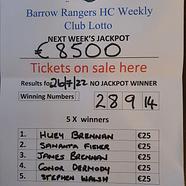 Barrow Rangers HC Weekly
Club Lotto
NEXT WEEK'S JACKPOT
€8500
Tickets on sale here
Results for 26/7/22 NO JACKPOT WINNER
Winning Numbers 2 8 9 14
5 X winners
1. HUEY BRENNAN €25
2. SAMANTA FISHER €25
3. JAMES BRENNAN €25
4. CONOR DERMODY €25
5. STEPHEN WALSH €25